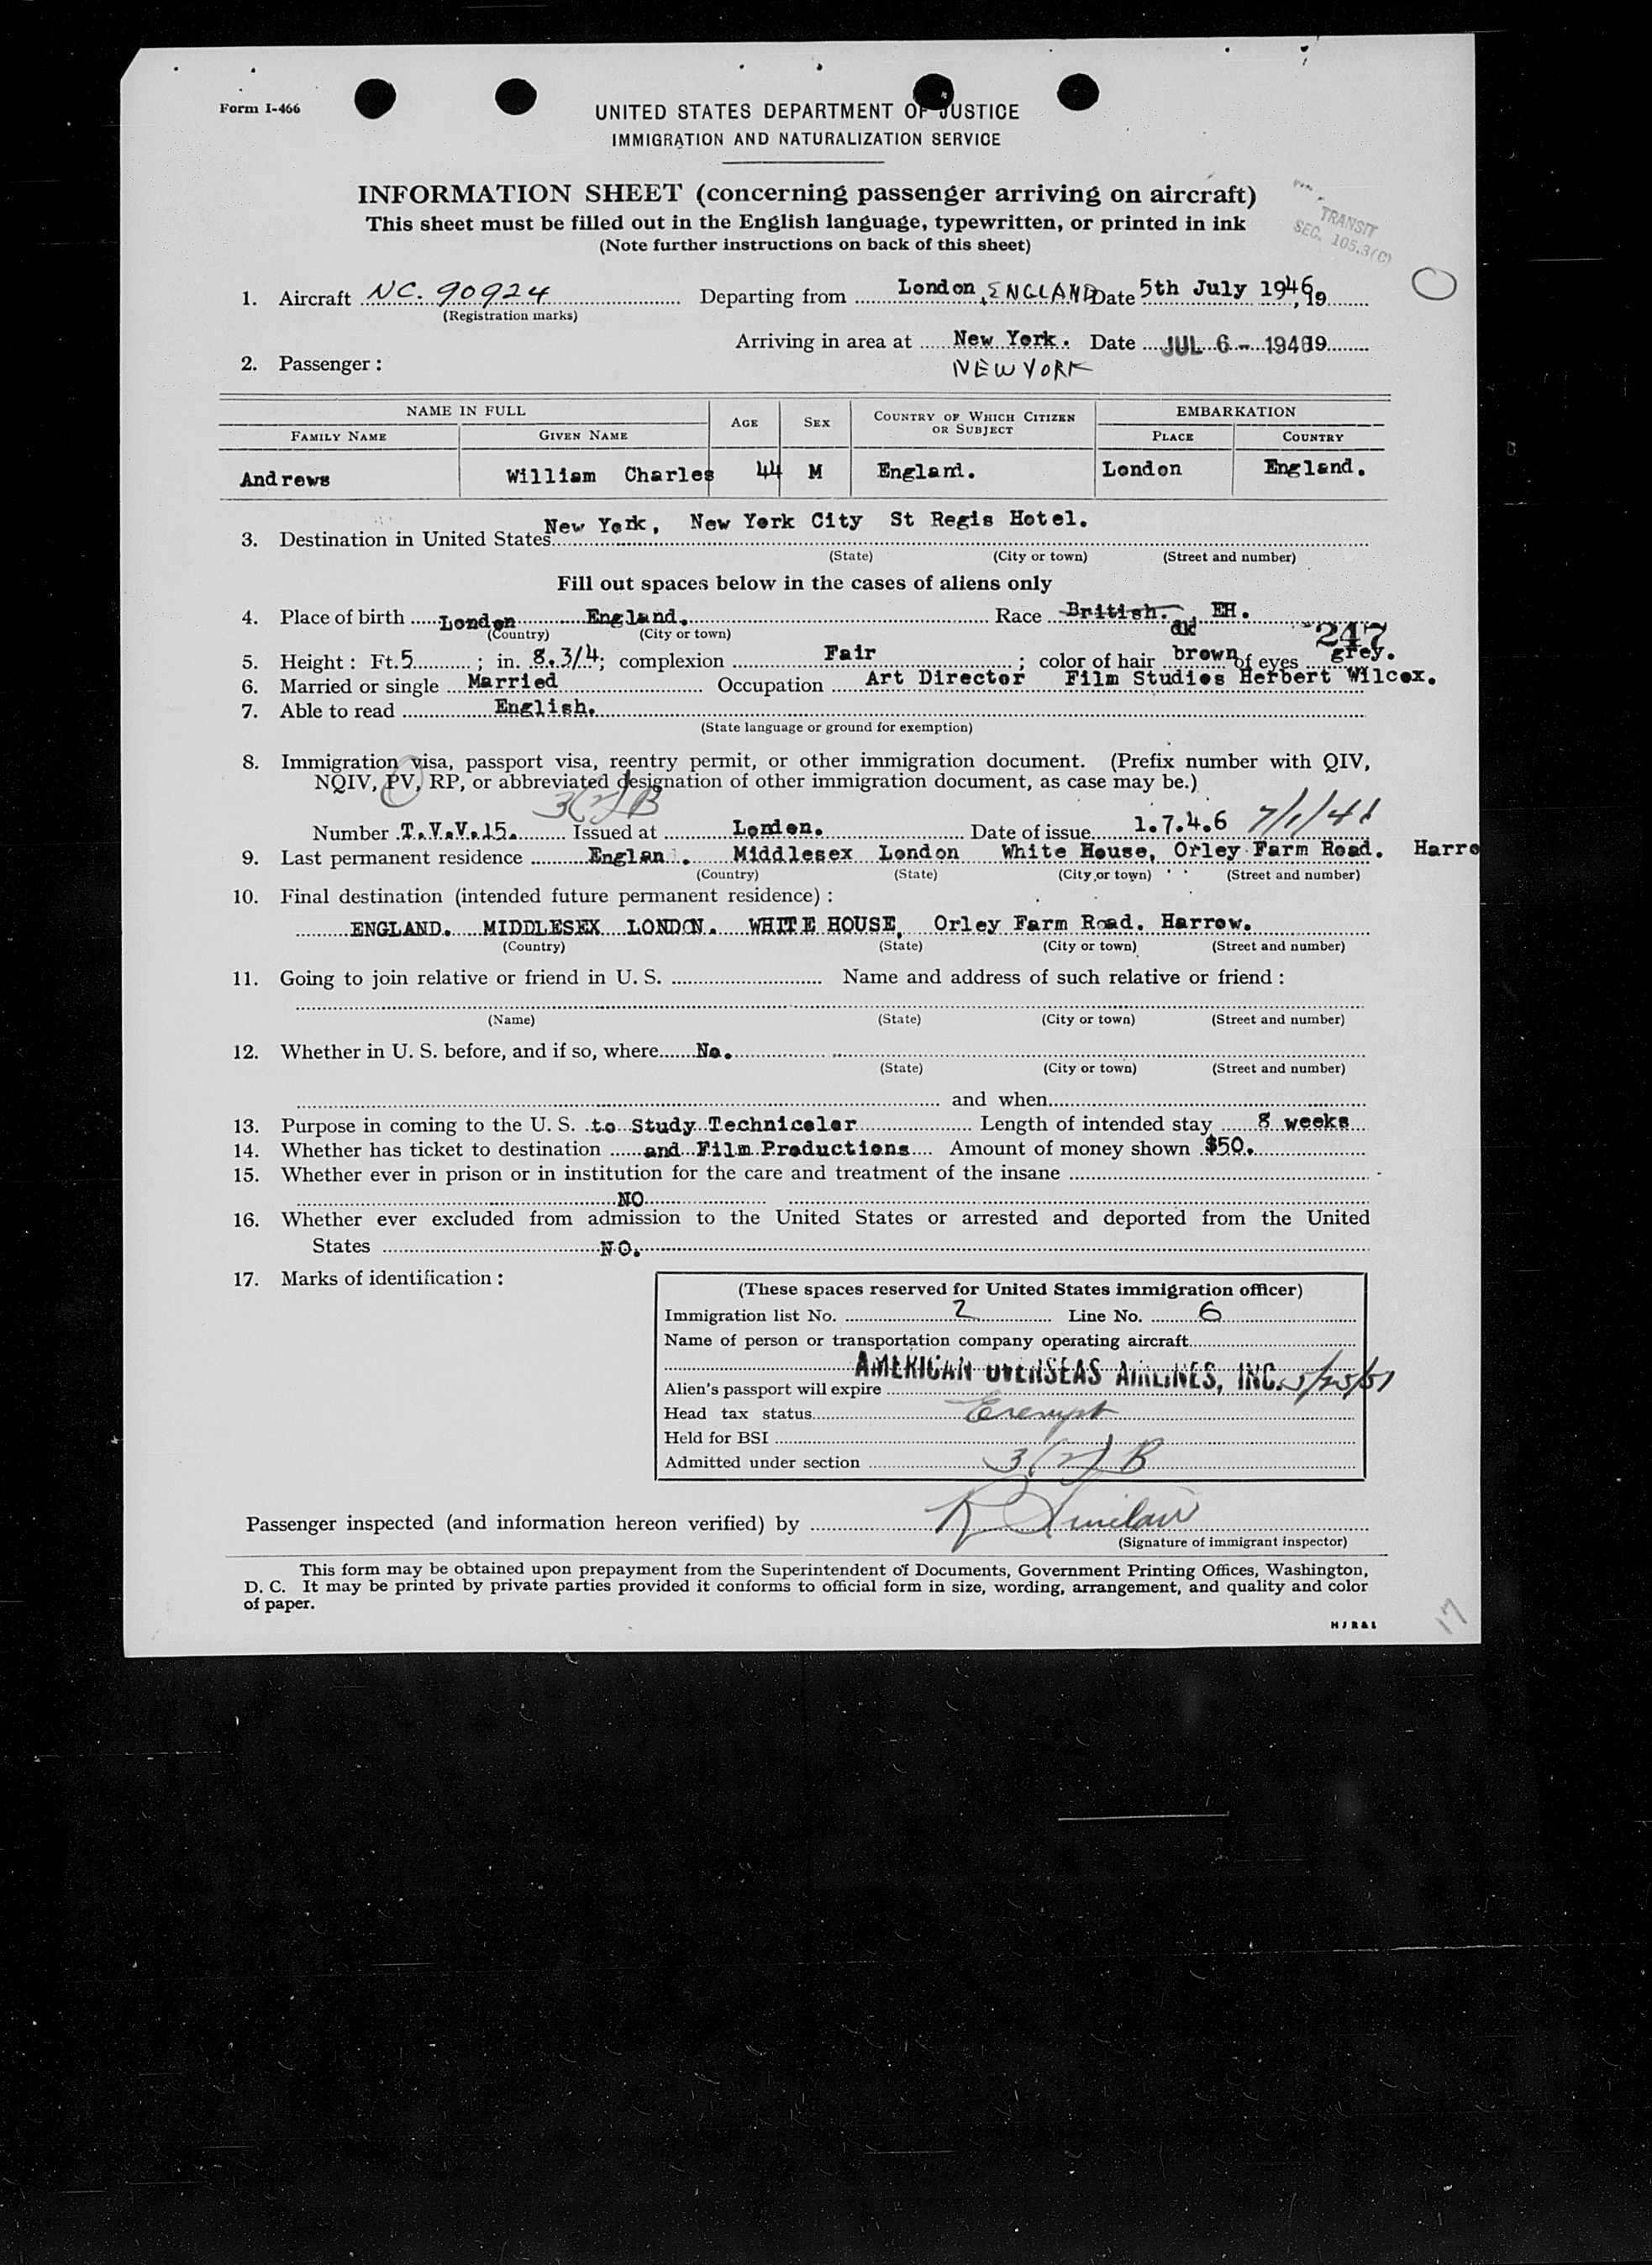 Form I-466
UNITED STATES DEPARTMENT OF JUSTICE
IMMIGRATION AND NATURALIZATION SERVICE
INFORMATION SHEET (concerning passenger arriving on aircraft)
This sheet must be filled out in the English language, typewritten, or printed in ink
(Note further instructions on back of this sheet)
TRANSIT
SEC. 105.3(C)
1. Aircraft NC. 90924 Departing from London, ENGLAND Date 5th July 1946, 19
(Registration marks)
Arriving in area at New York. Date JUL 6 - 1946 19
2. Passenger: NEW YORK
NAME IN FULL AGE SEX COUNTRY OF WHICH CITIZEN OR SUBJECT EMBARKATION
FAMILY NAME GIVEN NAME PLACE COUNTRY
Andrews William Charles 44 M England. London England.
3. Destination in United States New York, New York City St Regis Hotel.
(State) (City or town) (Street and number)
Fill out spaces below in the cases of aliens only
4. Place of birth London England. Race British. EH.
(Country) (City or town)
247
5. Height: Ft. 5; in. 8.3/4; complexion Fair; color of hair brown of eyes grey.
6. Married or single Married Occupation Art Director Film Studios Herbert Wilcox.
7. Able to read English.
(State language or ground for exemption)
8. Immigration visa, passport visa, reentry permit, or other immigration document. (Prefix number with QIV,
NQIV, PV, RP, or abbreviated designation of other immigration document, as case may be.)
3(2)B
Number T.V.V.15. Issued at London. Date of issue 1.7.4.6 7/1/46
9. Last permanent residence Englan . Middlesex London White House, Orley Farm Road. Harro
(Country) (State) (City or town) (Street and number)
10. Final destination (intended future permanent residence):
ENGLAND. MIDDLESEX LONDON. WHITE HOUSE, Orley Farm Road. Harrow.
(Country) (State) (City or town) (Street and number)
11. Going to join relative or friend in U. S. Name and address of such relative or friend:
(Name) (State) (City or town) (Street and number)
12. Whether in U. S. before, and if so, where No.
(State) (City or town) (Street and number)
and when
13. Purpose in coming to the U. S. to Study Technicolor Length of intended stay 8 weeks
14. Whether has ticket to destination and Film Productions Amount of money shown $50.
15. Whether ever in prison or in institution for the care and treatment of the insane
NO
16. Whether ever excluded from admission to the United States or arrested and deported from the United
States NO.
17. Marks of identification:
(These spaces reserved for United States immigration officer)
Immigration list No. 2 Line No. 6
Name of person or transportation company operating aircraft
AMERICAN OVERSEAS AIRLINES, INC.
Alien's passport will expire 5/25/51
Head tax status Exempt
Held for BSI
Admitted under section 3(2)B
Passenger inspected (and information hereon verified) by R Sinclair
(Signature of immigrant inspector)
This form may be obtained upon prepayment from the Superintendent of Documents, Government Printing Offices, Washington,
D. C. It may be printed by private parties provided it conforms to official form in size, wording, arrangement, and quality and color
of paper.
H J R & S
17